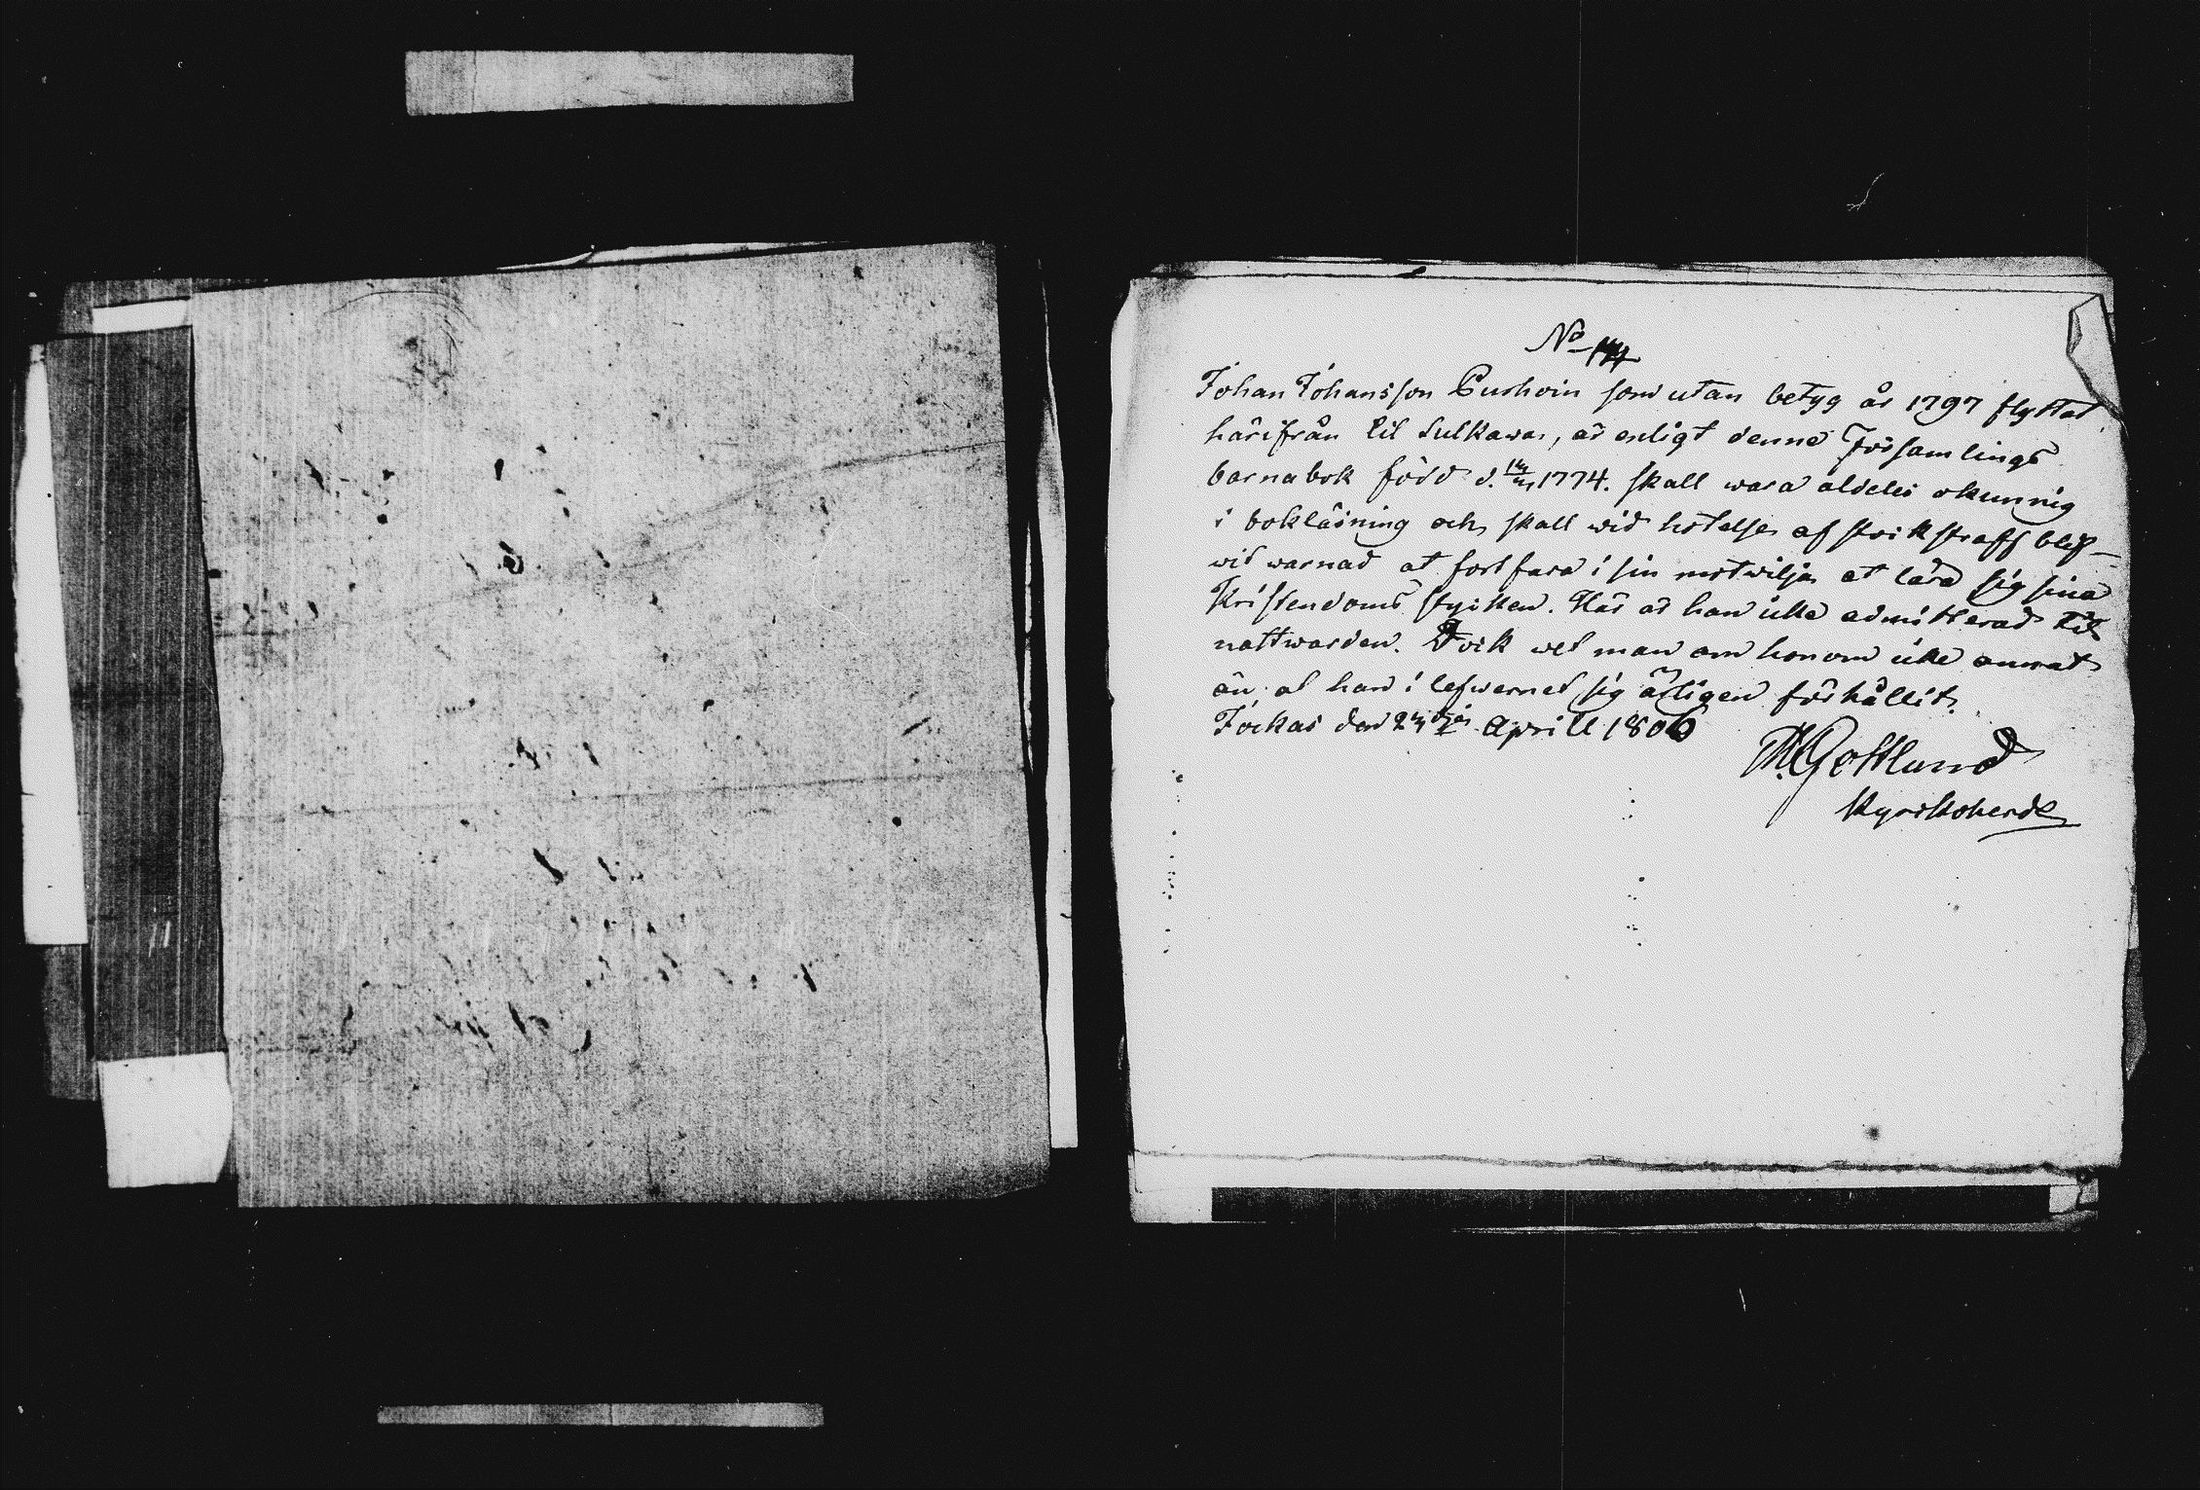 No 144
Johan Johansson Curhoin som utan betyg år 1797 flyttat
härifrån til Sulkawa, är enligt denne Församlings
barnabok född d. 1774. skall wara aldeles okunnig
i bokläsning och skall wid hotelse af stockstraff blif-
wit warnad at fortfara i sin motwilja at lära sig sina
Kristendoms stycken. Här är han icke admitterad til
nattwarden. Dock wet man om honom icke annat
än at han i lefwernet sig ärligen förhållit.
Jockas den Aprill 1806
M. Gottlund
Kyrckoherde